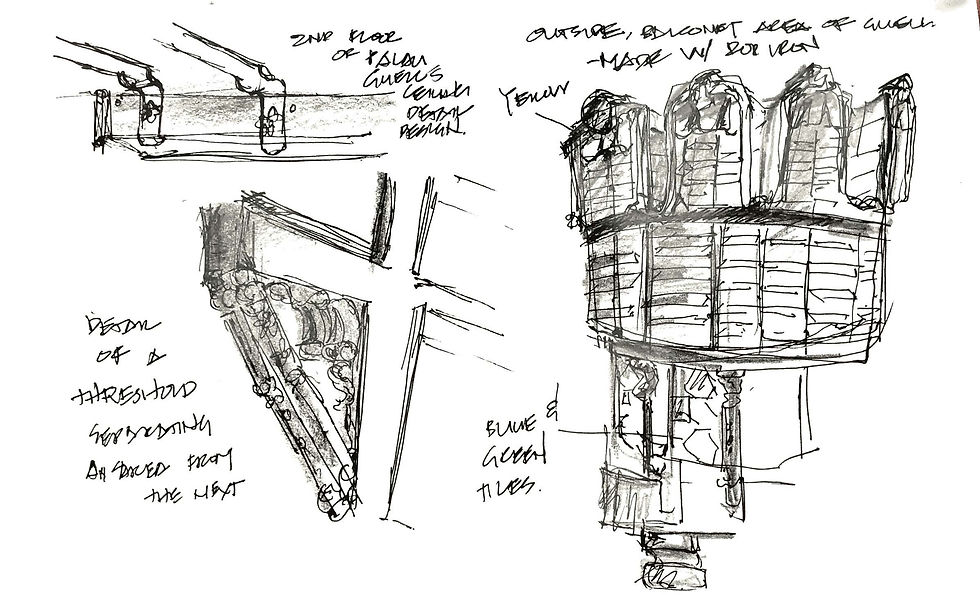 2ND FLOOR
OF PALAU
GUELL'S
CEILING
DETAIL
DESIGN.
OUTSIDE, BALCONET AREA OF GUELL.
-MADE W/ ROD IRON
YELLOW
DETAIL
OF A
THRESHOLD
SEPARATING
A SPACE FROM
THE NEXT
BLUE &
GREEN
TILES.